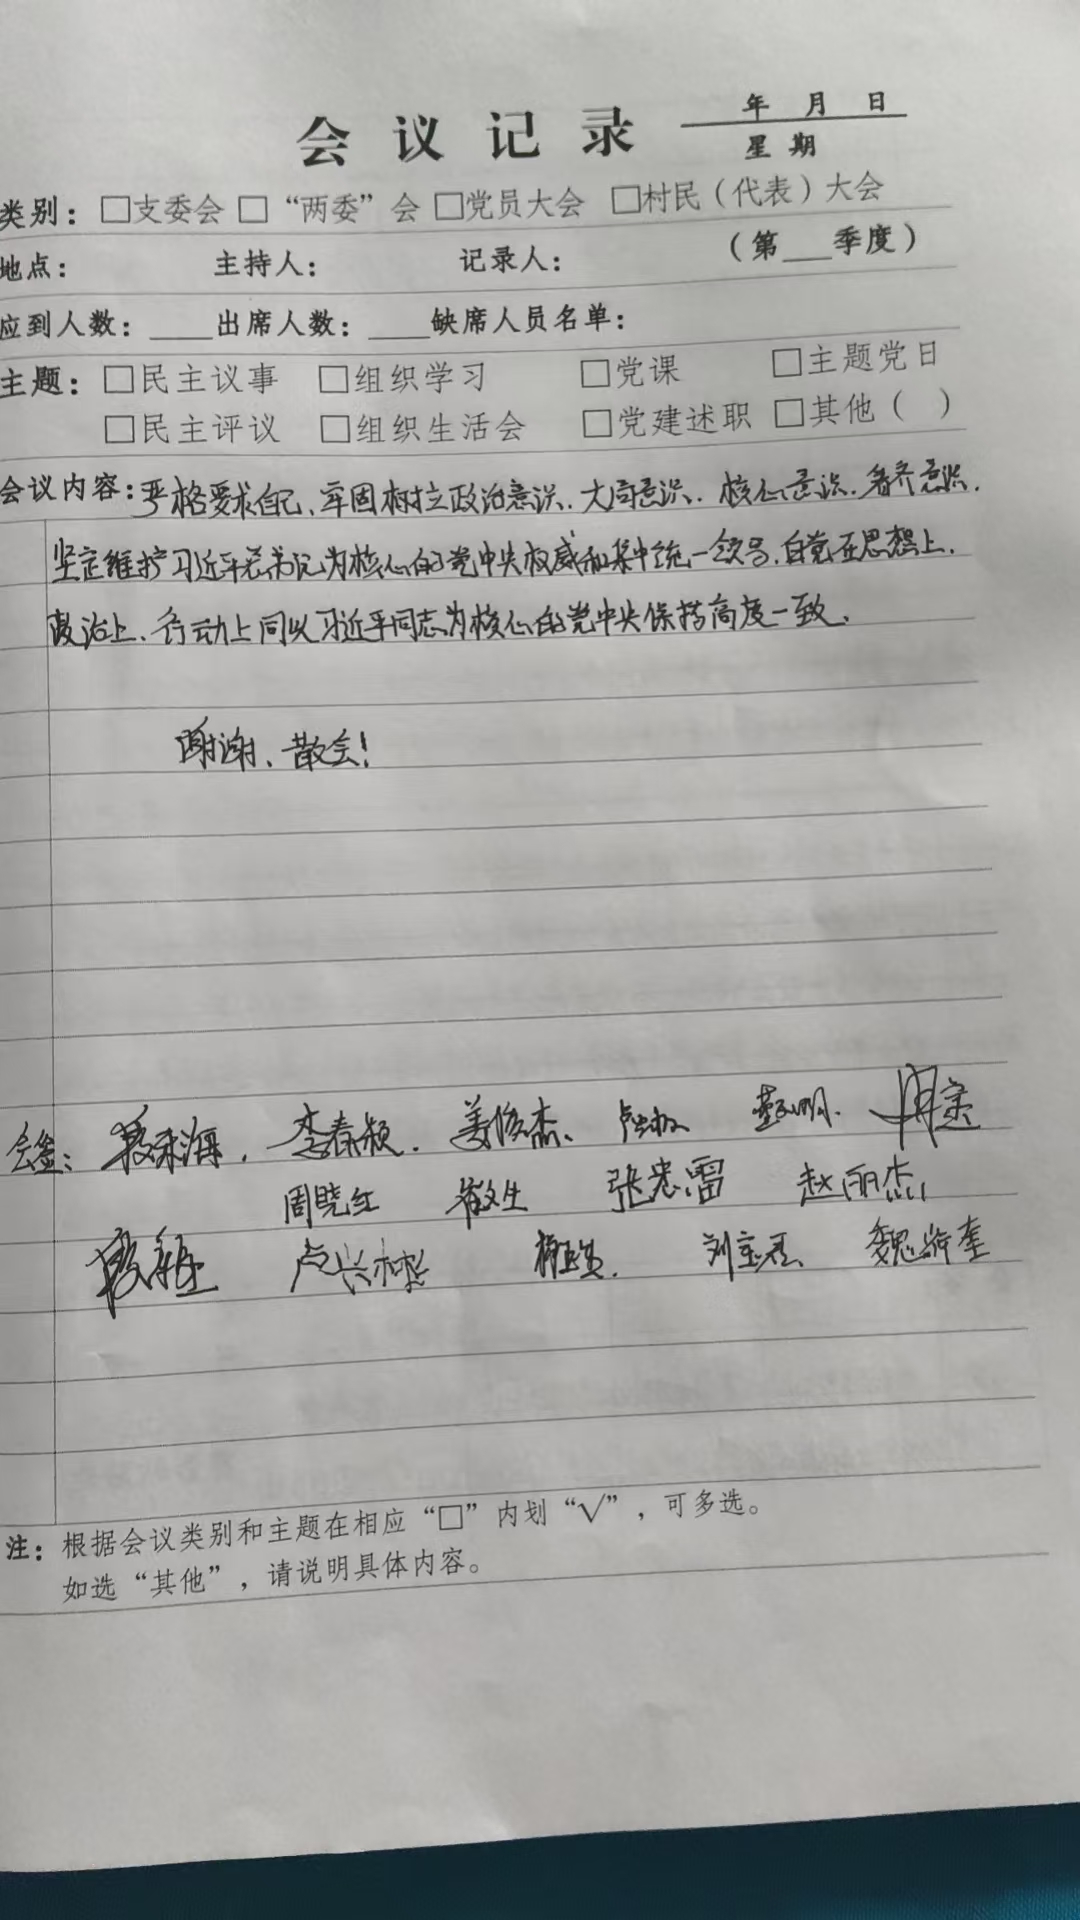 年 月 日
会议记录
星期
类别：□支委会 □“两委”会 □党员大会 □村民（代表）大会
地点： 主持人： 记录人： （第___季度）
应到人数：____出席人数：____缺席人员名单：
主题：□民主议事 □组织学习 □党课 □主题党日
□民主评议 □组织生活会 □党建述职 □其他（ ）
会议内容：严格要求自己、牢固树立政治意识、大局意识、核心意识、看齐意识、
坚定维护习近平总书记为核心的党中央权威和集中统一领导，自觉在思想上、
政治上、行动上同以习近平同志为核心的党中央保持高度一致。
谢谢、散会！
会签： 李春颖 姜俊杰
周晓红 张忠雷 赵丽杰
卢兴彬 刘宝君
注：根据会议类别和主题在相应“□”内划“√”，可多选。
如选“其他”，请说明具体内容。